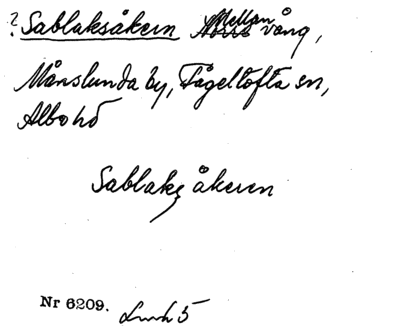 ? Sablaksåkern Mellan vång,
Månslunda by, Fågeltofta sn,
Albo hd
Sablaks åkeren
Nr 6209.